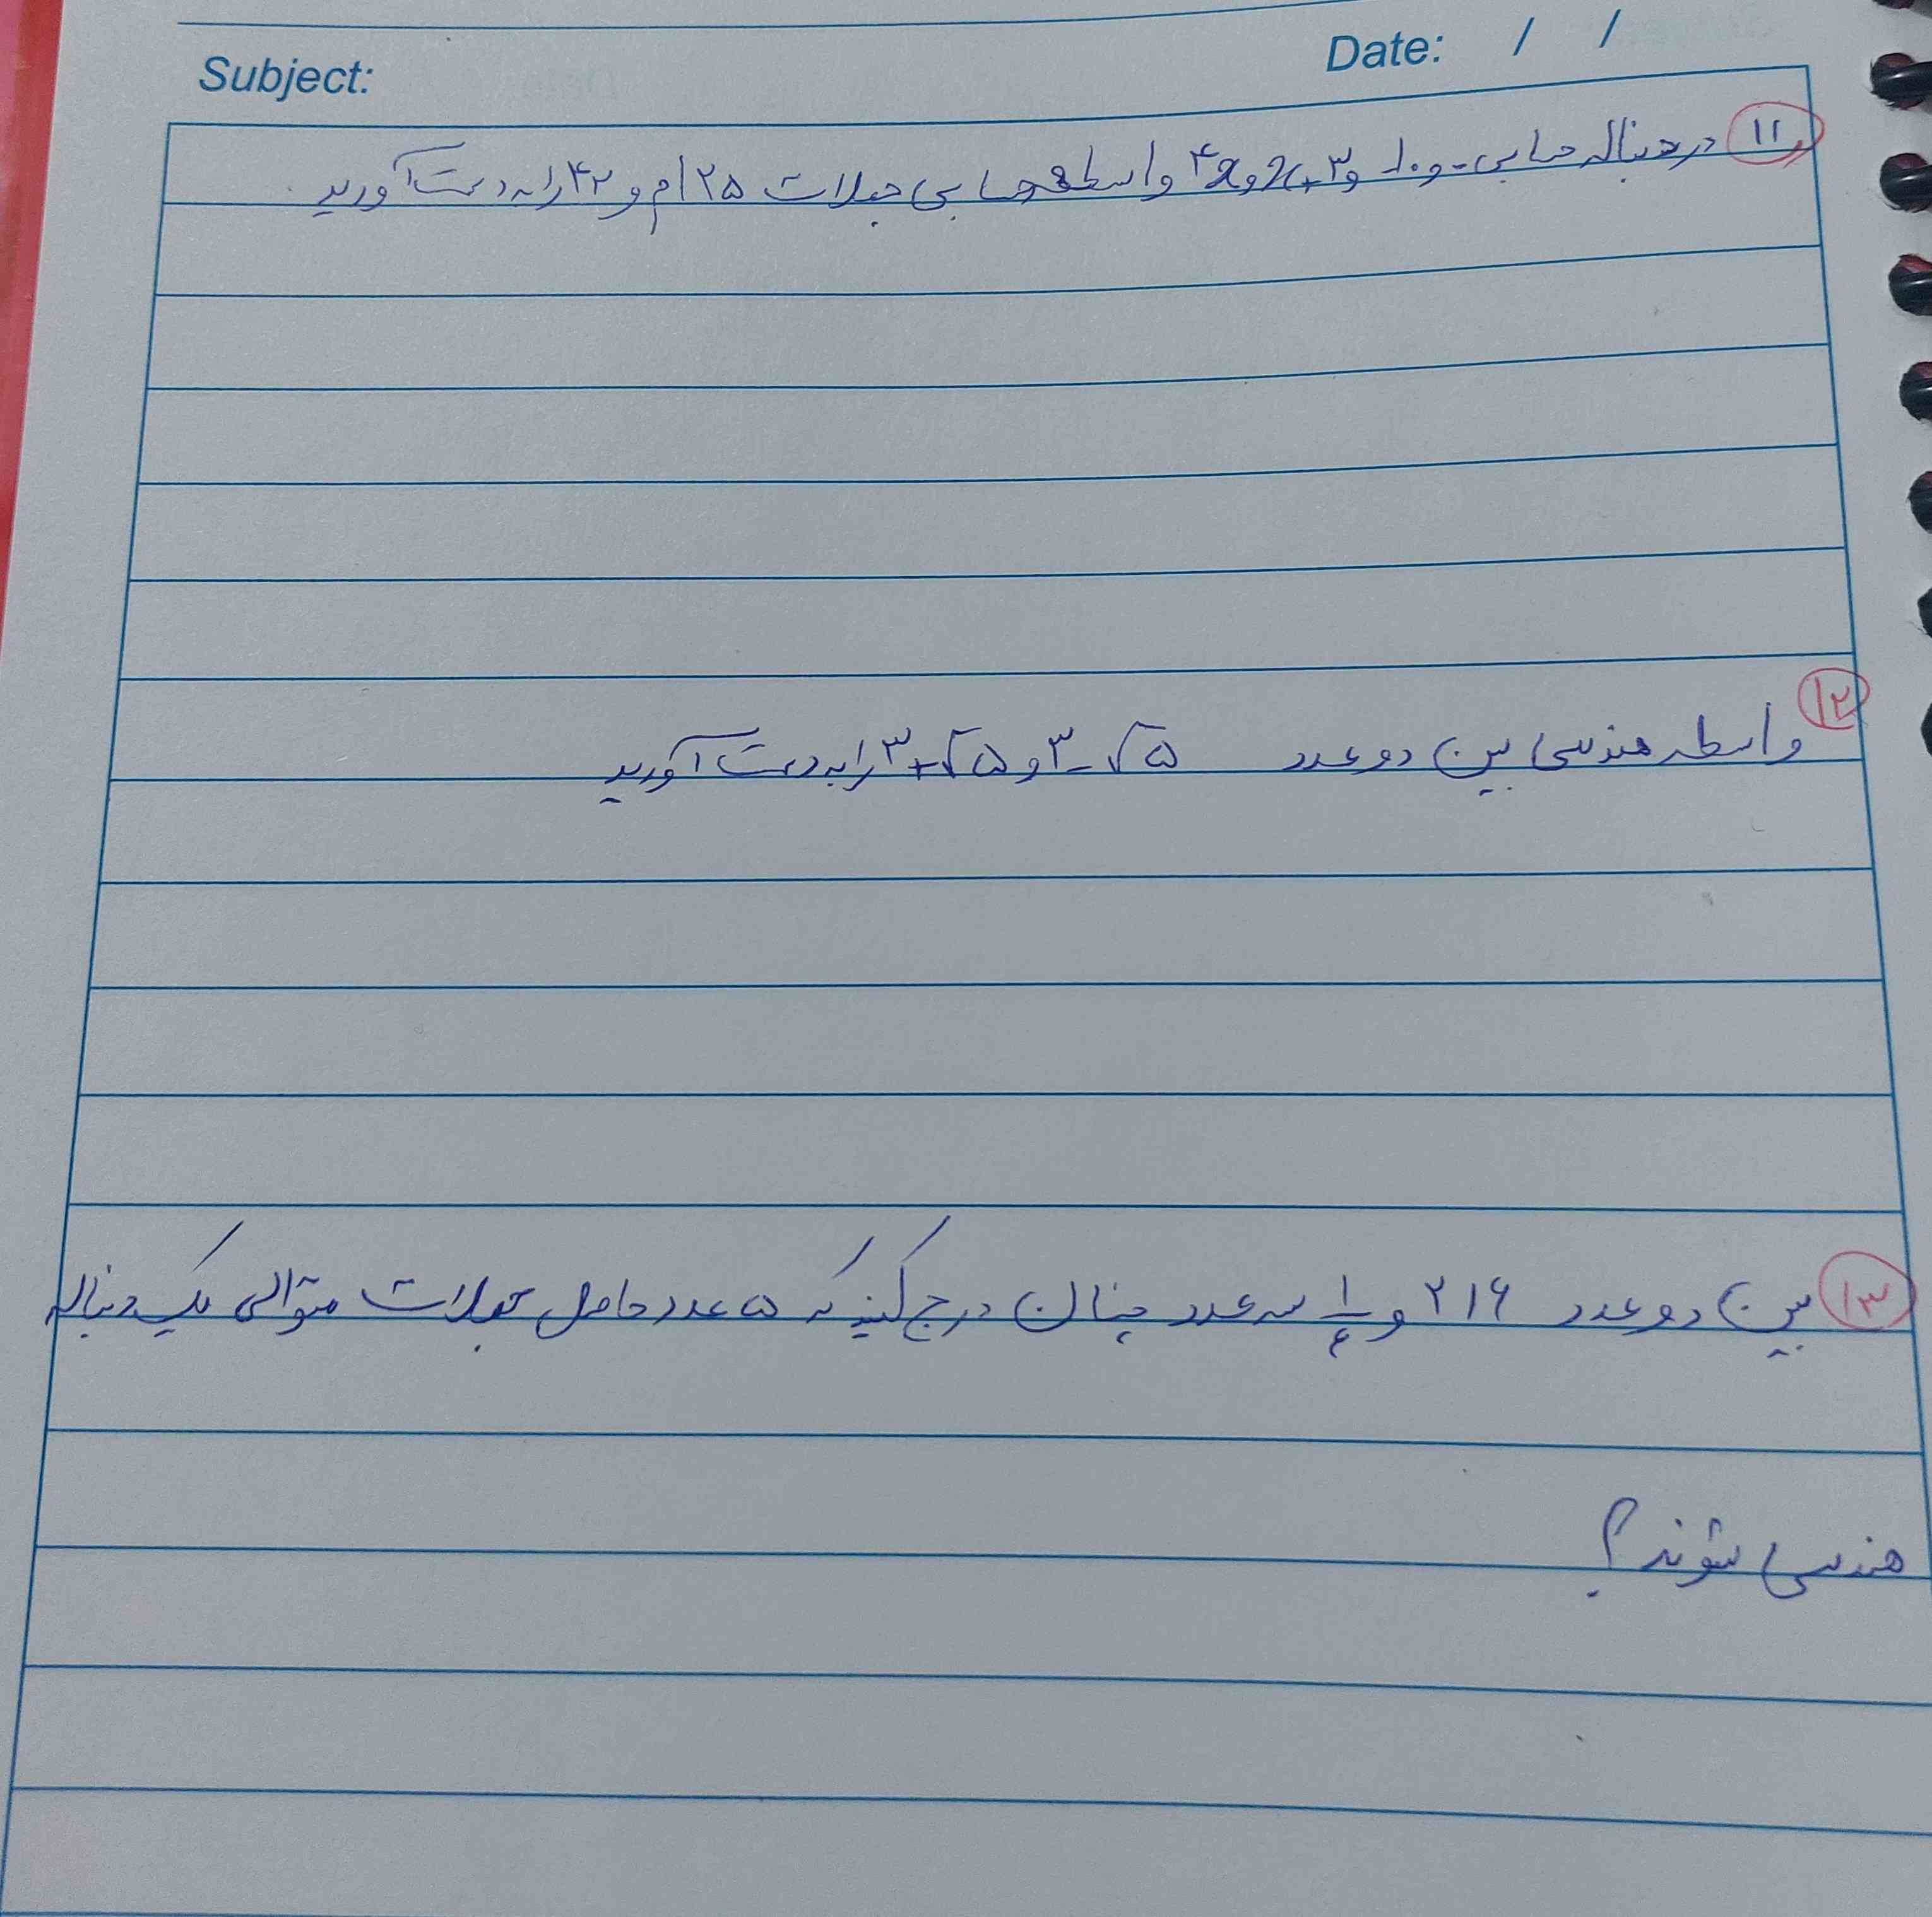 Subject:
Date: / /
۱۱ در دنباله حسابی ... و ۱۰ و x+۳ و ۴x واسطه حسابی جملات ۲۵ ام و ۴۲ را به دست آورید.
۱۲ واسطه هندسی بین دو عدد ۳-√۵ و ۳+√۵ را به دست آورید
۱۳ بین دو عدد ۲۱۶ و ۱/۶ سه عدد چنان درج کنید که ۵ عدد حاصل جملات متوالی یک دنباله
هندسی شوند؟